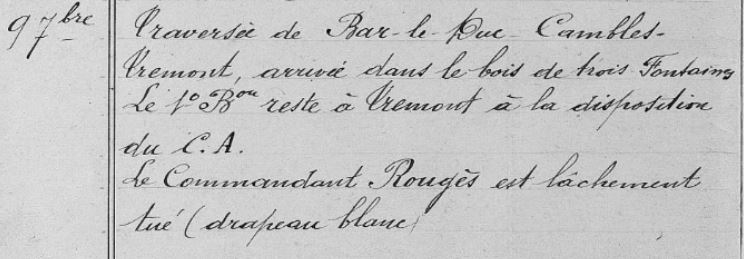 9 7bre
Traversée de Bar-le-Duc - Combles-
Tremont, arrivée dans le bois de trois Fontaines
Le 1o Bon reste à Tremont à la disposition
du C.A.
Le Commandant Rougès est lâchement
tué (drapeau blanc)